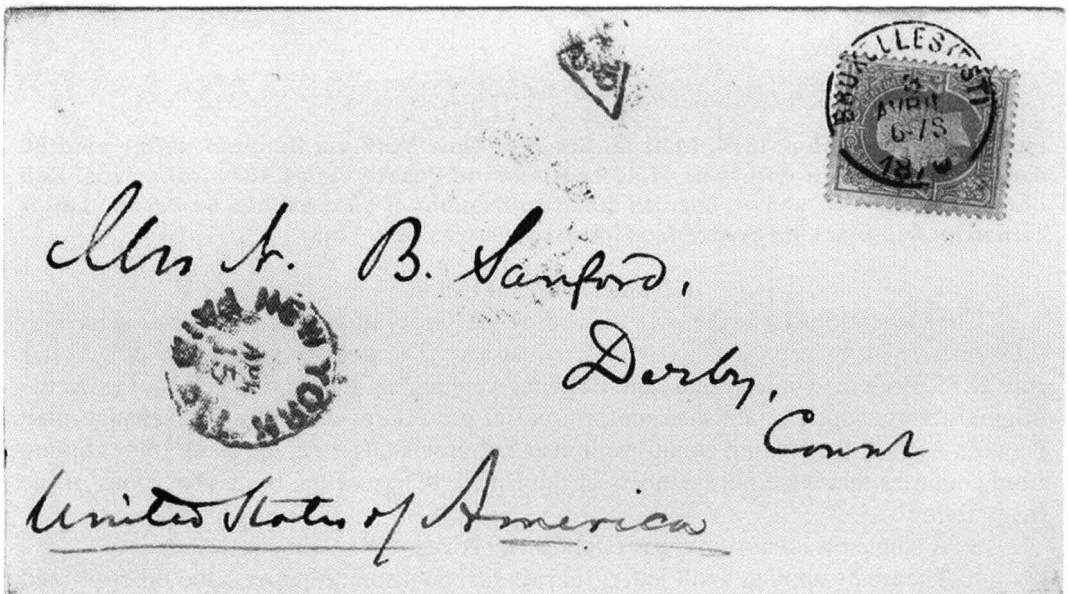 BRUXELLES (EST)
AVRIL
6-7S
Mrs N. B. Sanford,
Derby,
Connt
NEW YORK
APR
15
PAID ALL
United States of America